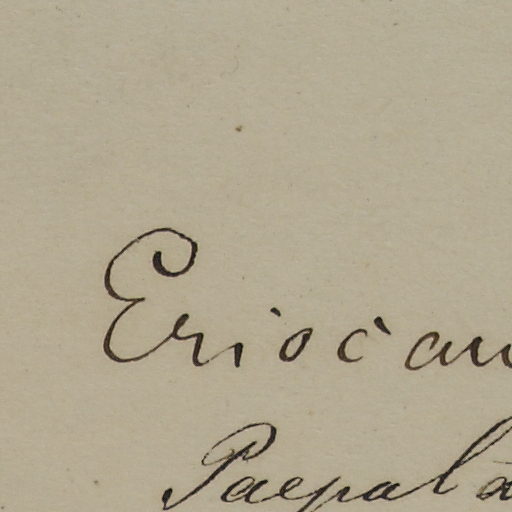 Eriocau
Paepala